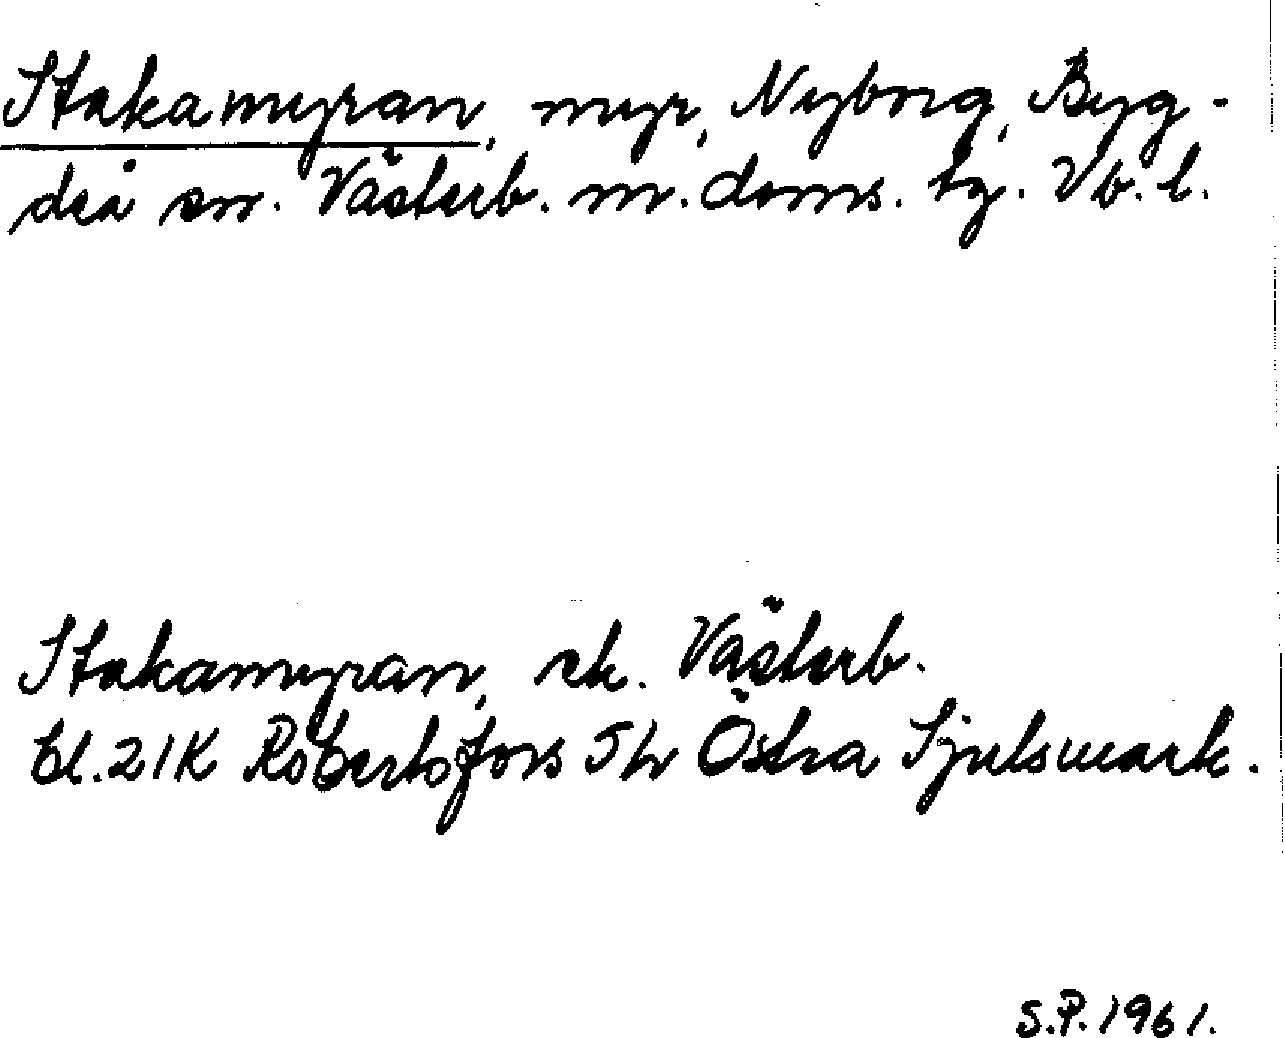 Stakamyran, myr, Nyborg, Byg-
deå sn. Västerb. m. doms. tg. Vb. l.
Stakamyran, ek. Västerb.
bl. 21K Robertsfors 5 h Östra Sjulsmark.
S.P. 1961.